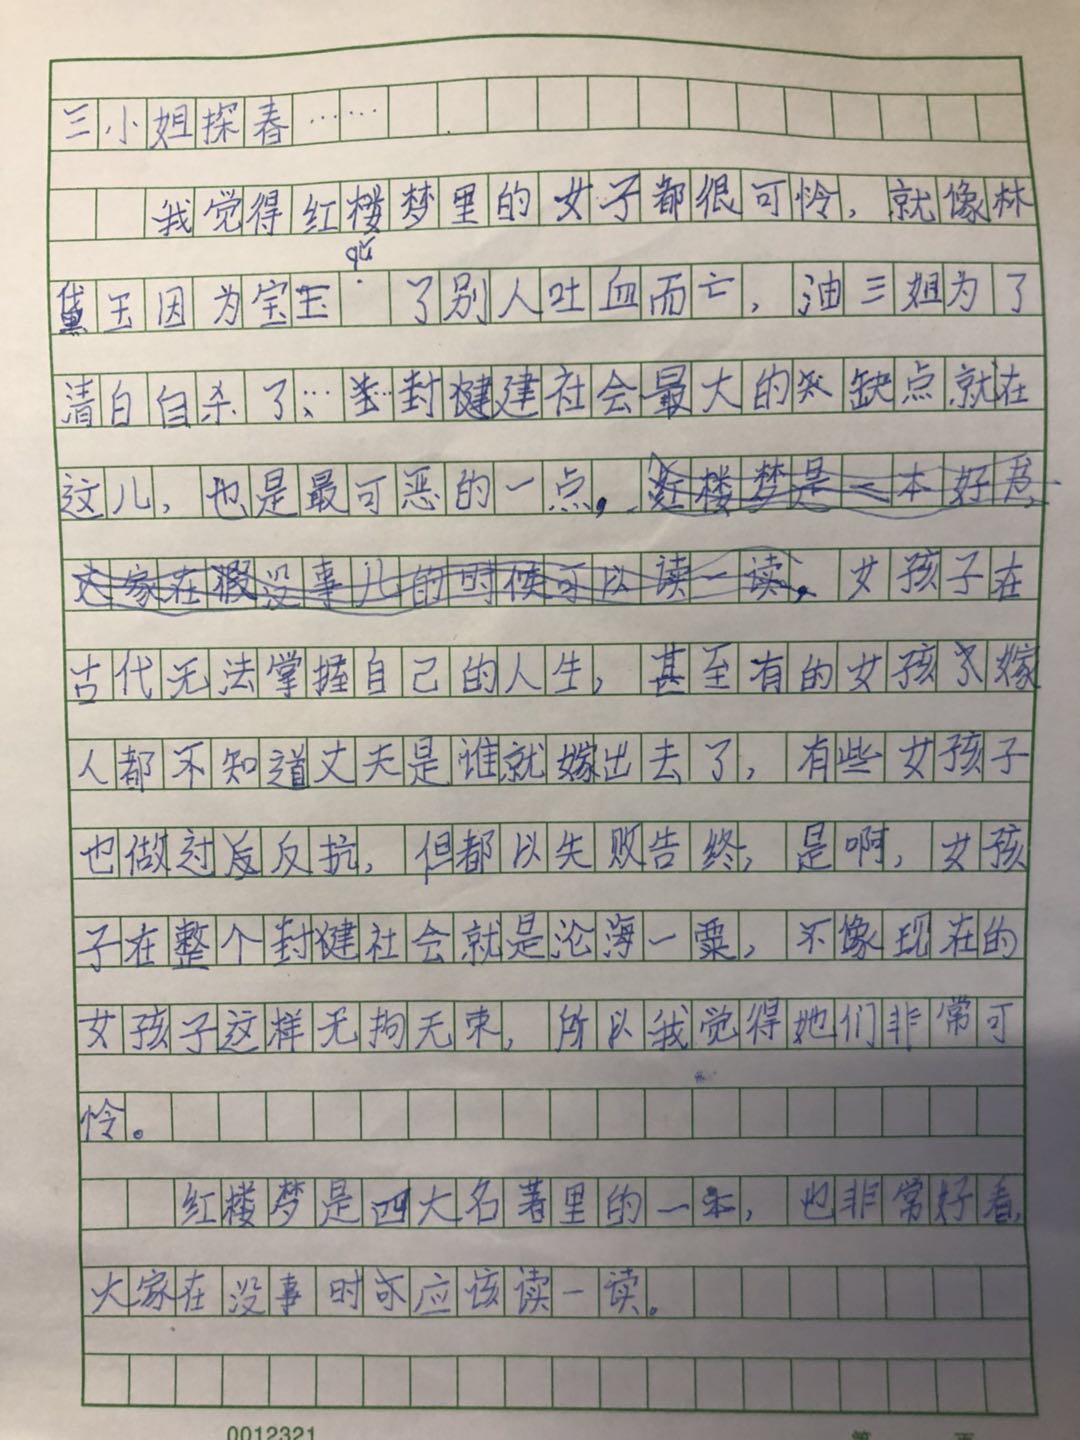 三小姐探春……
我觉得红楼梦里的女子都很可怜，就像林
qǔ
黛玉因为宝玉 了别人吐血而亡，油三姐为了
清白自杀了…封健建社会最大的缺点就在
这儿，也是最可恶的一点。红楼梦是一本好书，
大家在假没事儿的时候可以读一读。女孩子在
古代无法掌握自己的人生，甚至有的女孩嫁
人都不知道丈夫是谁就嫁出去了，有些女孩子
也做过反反抗，但都以失败告终，是啊，女孩
子在整个封健社会就是沦海一粟，不像现在的
女孩子这样无拘无束，所以我觉得她们非常可
怜。
红楼梦是四大名著里的一本，也非常好看，
大家在没事时应该读一读。
0012321
第 页